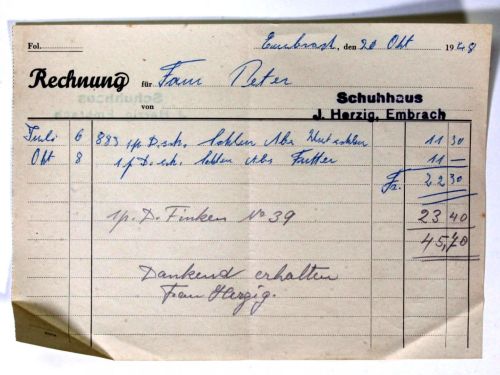 Fol.
Embrach, den 20 Okt 1948
Rechnung für Frau Peter
von
Schuhhaus
J. Herzig, Embrach
Juli 6 883 1p D.sch. Sohlen Abs 11 30
Okt 8 1p D.sch. Sohlen Abs Futter 11 —
Fr. 22 30
1p. D. Finken No 39 23 40
45,70
Dankend erhalten
Frau Herzig.